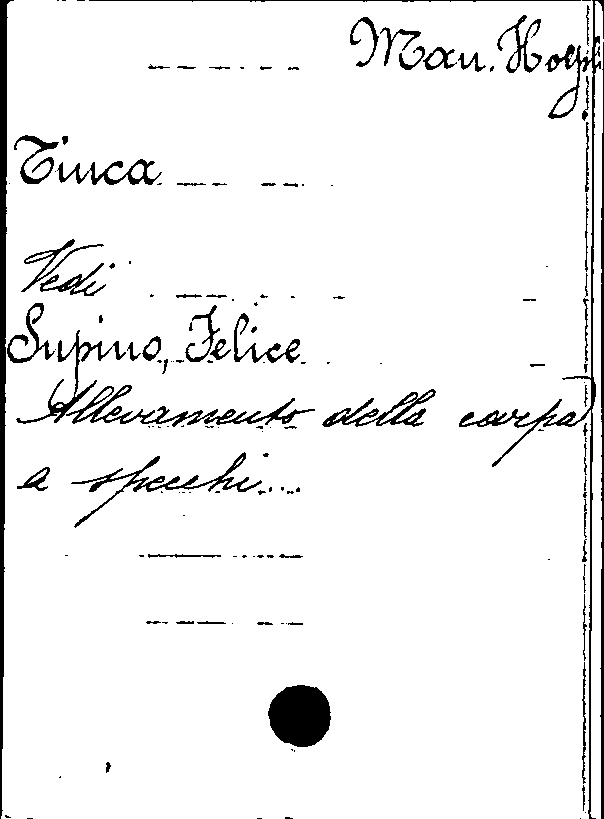 Man. Hoepli
Tinca
Vedi
Supino, Felice
Allevamento della carpa
a specchi...